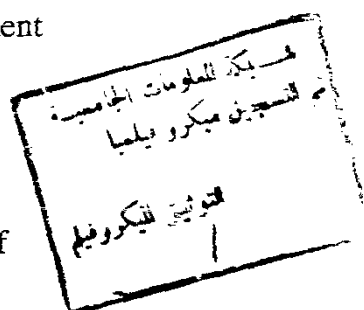 ent
شبكة المعلومات الجامعية
تم التسجيل ميكروفيلميا
التوثيق الميكروفيلم
f